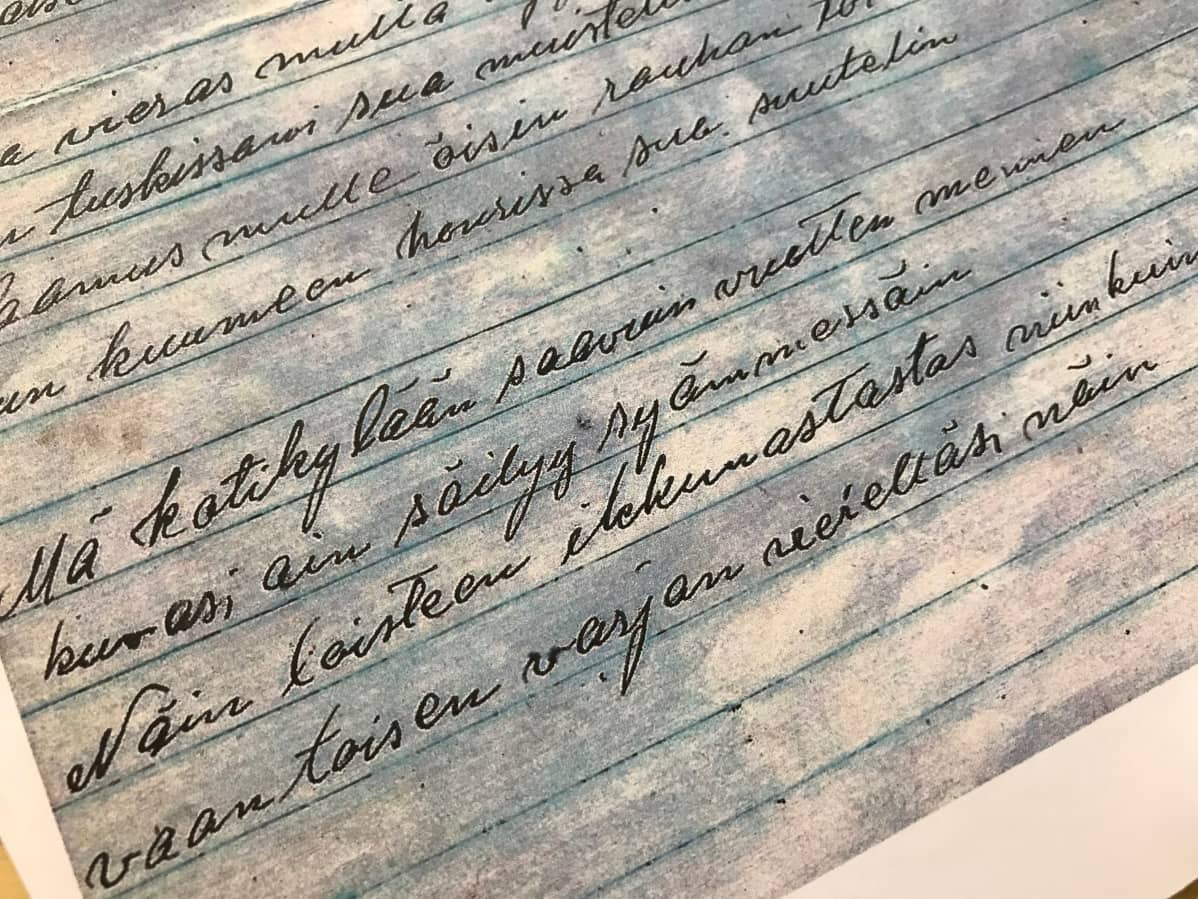 vieras mulla
tuskissani sua
mulle öisin rauhan
kuumeen hourissa sua suutelin
Mä kotikylään saavuin vuotten mennen
kuvasi ain säilyy syämmessäin
Näin loisteen ikkunastastas niinkuin
vaan toisen varjan vieieltäsi näin